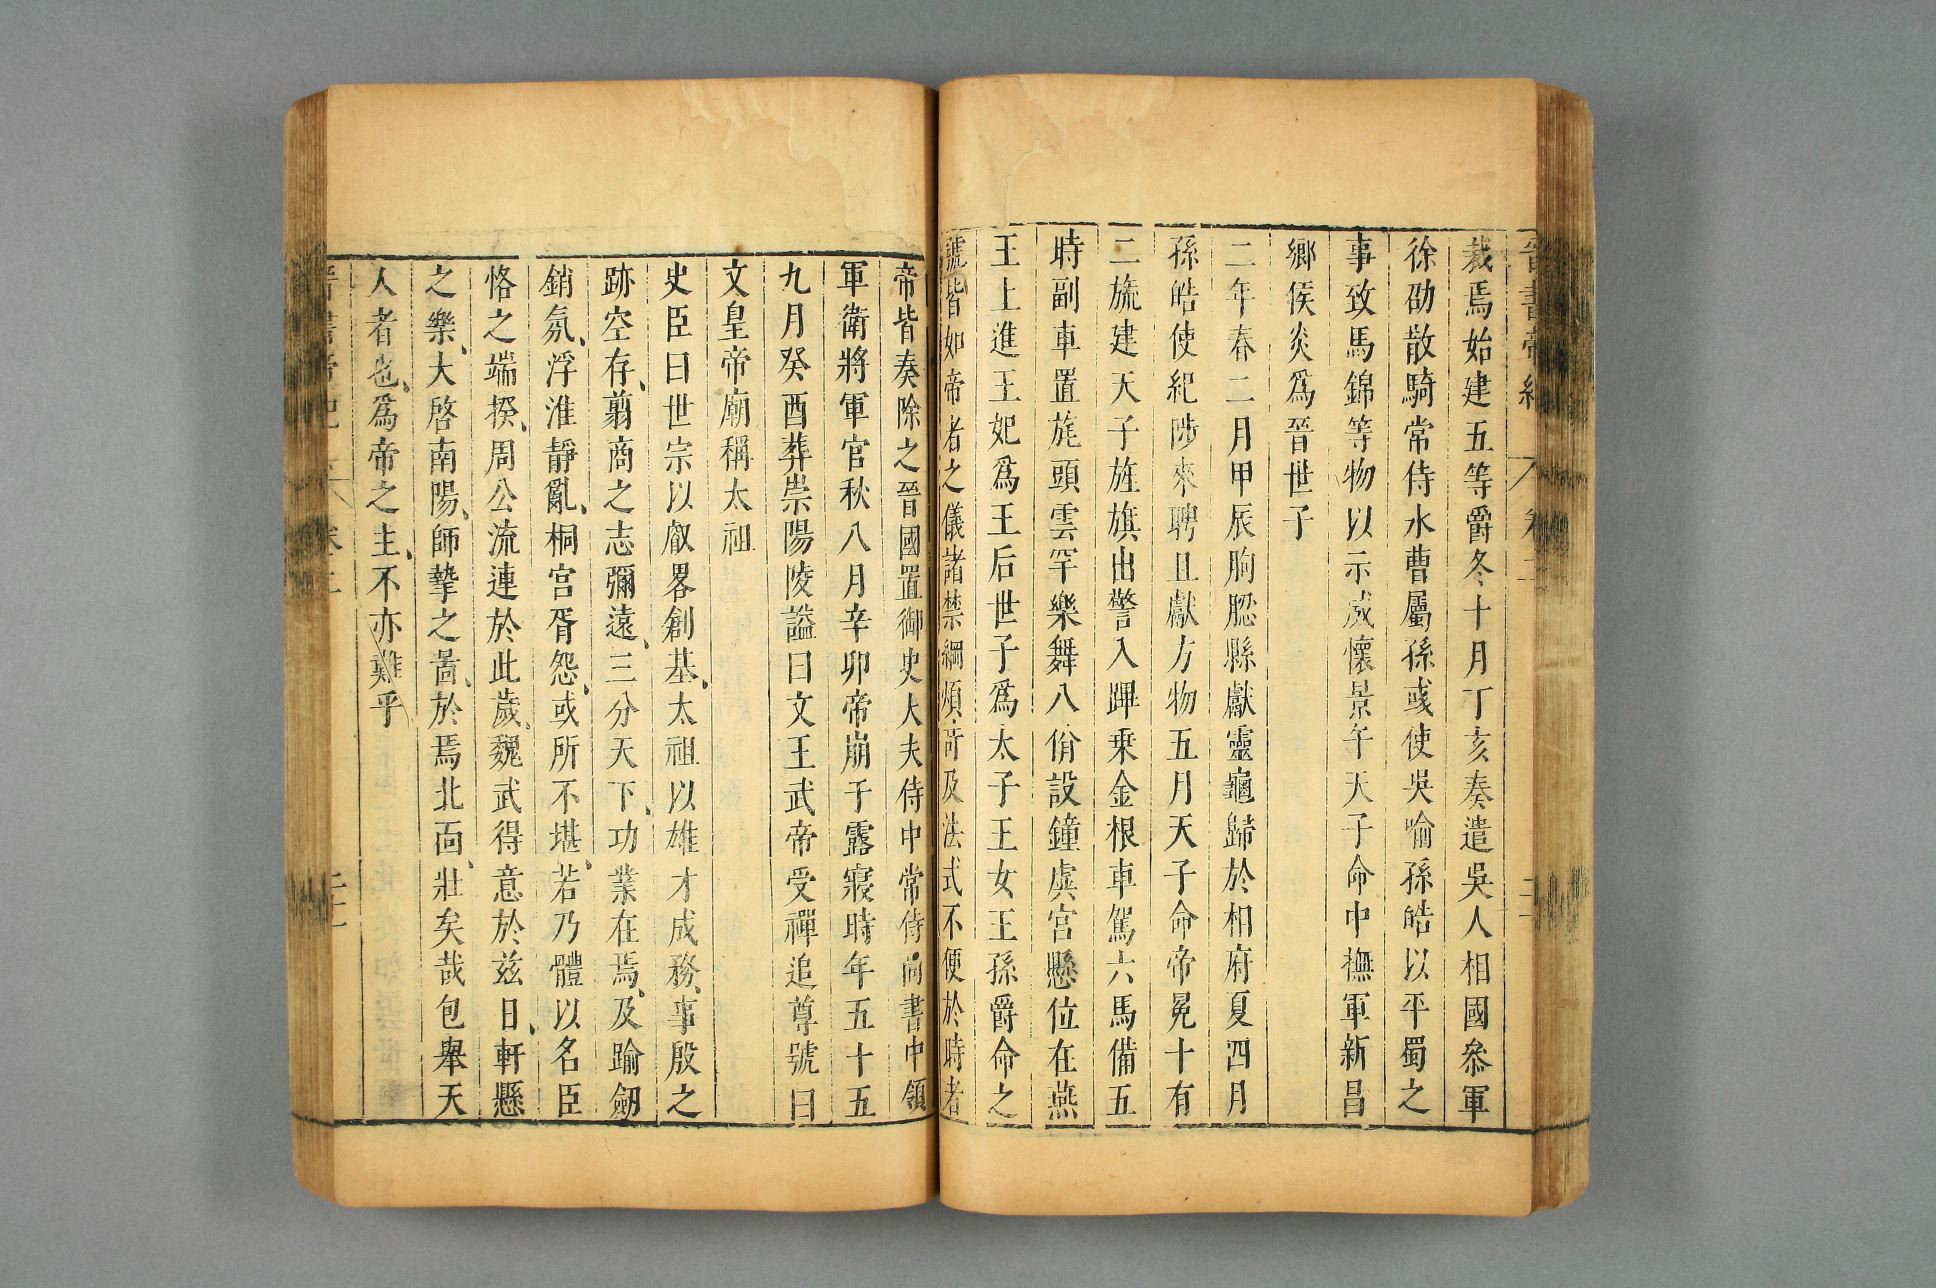 裁焉始建五等爵冬十月丁亥奏遣吳人相國叅軍
徐劭散騎常侍水曹屬孫彧使吳喻孫皓以平蜀之
事致馬錦等物以示威懷景午天子命中撫軍新昌
鄉侯炎爲晉世子
二年春二月甲辰朐䏰縣獻靈龜歸於相府夏四月
孫皓使紀陟來聘且獻方物五月天子命帝冕十有
二旒建天子旌旗出警入蹕乗金根車駕六馬備五
時副車置旄頭雲罕樂舞八佾設鐘虡宮懸位在燕
王上進王妃爲王后世子爲太子王女王孫爵命之
號皆如帝者之儀諸禁網煩苛及法式不便於時者
帝皆奏除之晉國置御史大夫侍中常侍尚書中領
軍衛將軍官秋八月辛卯帝崩于露寢時年五十五
九月癸酉葬崇陽陵謚曰文王武帝受禪追尊號曰
文皇帝廟稱太祖
史臣曰世宗以叡畧創基、太祖以雄才成務、事殷之
跡空存、翦商之志彌遠、三分天下、功業在焉、及踰劒
銷氛、浮淮靜亂、桐宮胥怨、或所不堪、若乃體以名臣
恪之端揆、周公流連於此歲、魏武得意於茲日、軒懸
之樂、大啓南陽、師摯之啚、於焉北面、壯矣哉包舉天
人者也、爲帝之主、不亦難乎